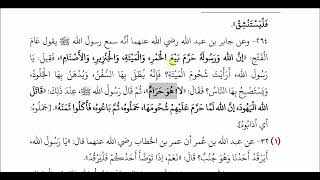 فَلْيَسْتَنْشِقْ».
٢٦٤- وعن جابر بن عبد الله رضي الله عنهما أنَّه سمع رسول الله ﷺ يقول عَامَ
الْفَتْحِ: «إِنَّ الله وَرَسُولَهُ حَرَّمَ بَيْعَ الْخَمْرِ، وَالْمَيْتَةِ، وَالْخِنْزِيرِ، وَالأَصْنَامِ»، فَقِيلَ: يَا
رَسُولَ الله، أَرَأَيْتَ شُحُومَ الْمَيْتَةِ؟ فَإِنَّهُ يُطْلَى بِهَا السُّفُنُ، وَيُدْهَنُ بِهَا الْجُلُودُ،
وَيَسْتَصْبِحُ بِهَا النَّاسُ؟ فَقَالَ: «لَا، هُوَ حَرَامٌ»، ثُمَّ قَالَ رَسُولُ الله ﷺ عِنْدَ ذَلِكَ: «قَاتَلَ
الله الْيَهُودَ، إِنَّ الله لَمَّا حَرَّمَ عَلَيْهِمْ شُحُومَهَا، جَمَلُوهُ، ثُمَّ بَاعُوهُ، فَأَكَلُوا ثَمَنَهُ». جَمَلُوهُ
أي أَذَابُوهُ.
(١) ٣٢- عن عبد الله بن عُمر أن عمر بن الخطاب رضي الله عنهما قال: «يَا رَسُولَ الله،
أَيَرْقُدُ أَحَدُنَا وَهُوَ جُنُبٌ؟ قَالَ: «نَعَمْ، إِذَا تَوَضَّأَ أَحَدُكُمْ فَلْيَرْقُدْ».